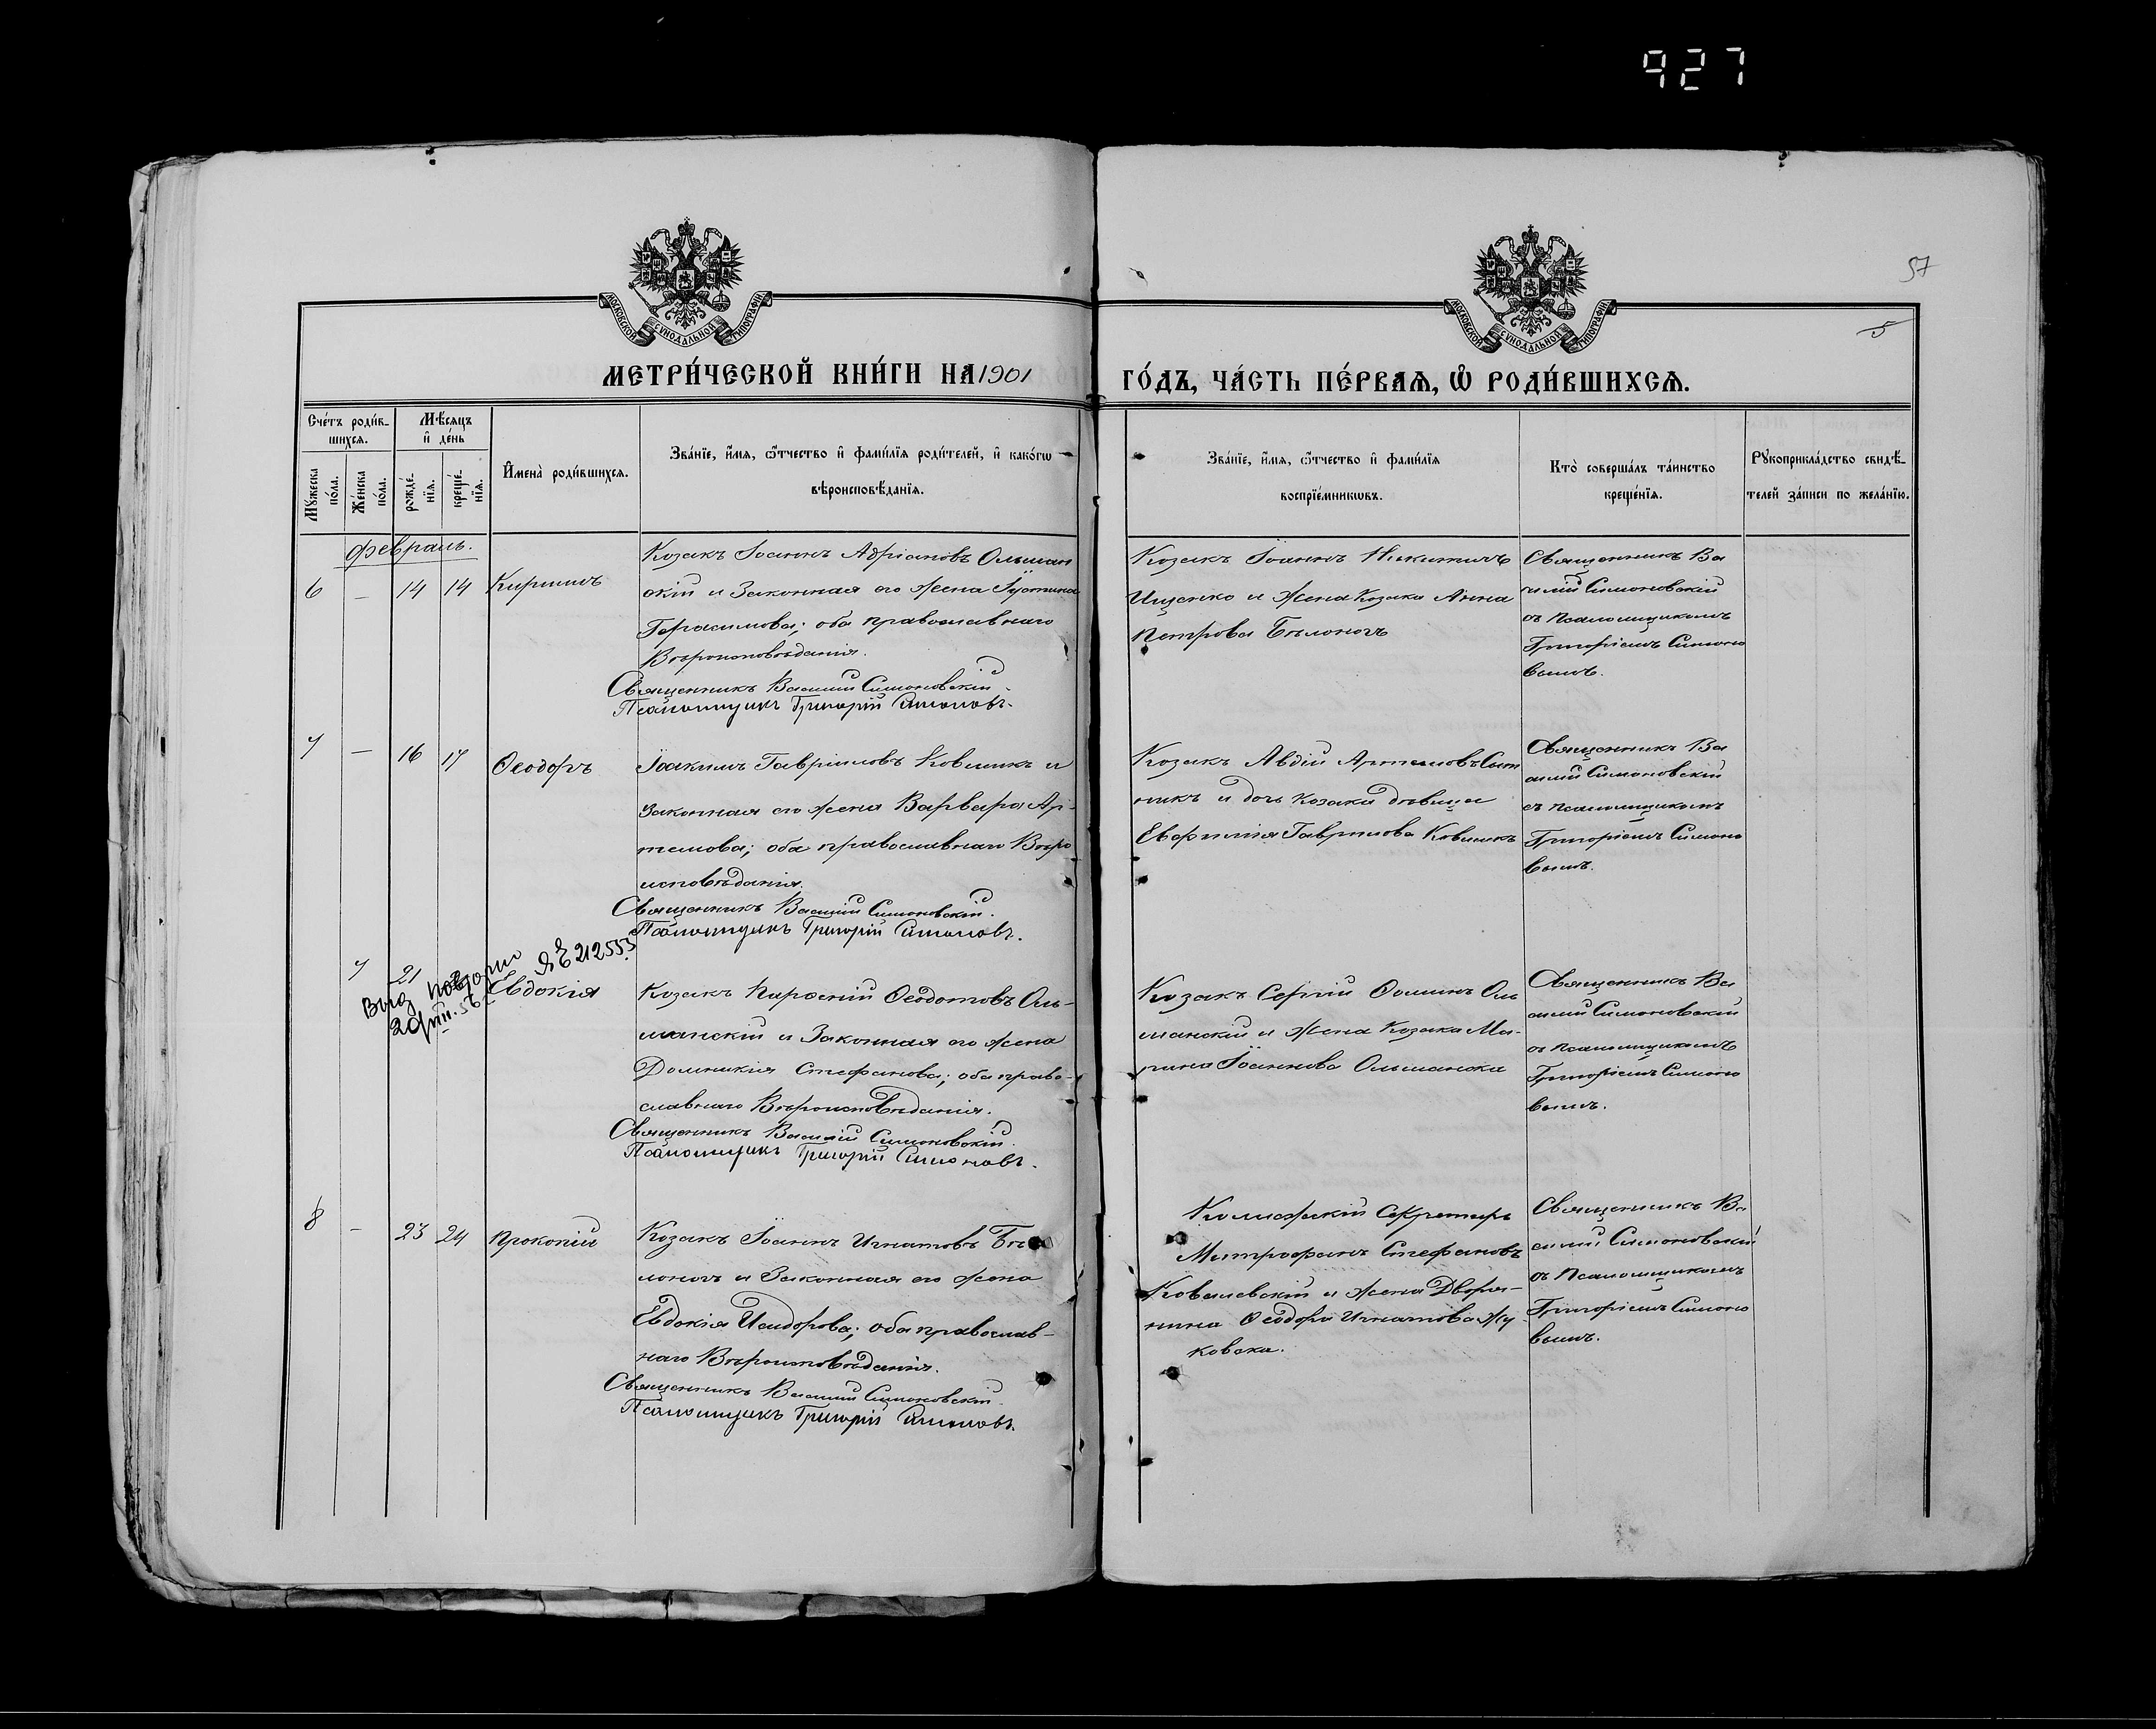 927
57
5
МОСКОВСКОЙ СУНОДАЛЬНОЙ ТИПОГРАФІИ
МОСКОВСКОЙ СУНОДАЛЬНОЙ ТИПОГРАФІИ
МЕТРИ́ЧЕСКОЙ КНИ́ГИ НА 1901
ГО́ДЪ, ЧА́СТЬ ПЕ́РВАЯ, Ѿ РОДИ́ВШИХСЯ.
Сче́тъ роди́в-
шихся.
Мꙋжеска по́ла.
Же́нска по́ла.
Мѣ́сяцъ
и де́нь
рожде́-
нїя.
креще́-
нїя.
Имена̀ роди́вшихся.
Зва́нїе, и́мя, ѻ҆́тчество и фами́лїя роди́телей, и како́гѡ
вѣроисповѣ́данїя.
Зва́нїе, и́мя, ѻ҆́тчество и фами́лїя
воспрїе́мникѡвъ.
Кто̀ соверша́лъ та́инство
креще́нїя.
Рꙋкоприкла́дство свидѣ́-
телей за́писи по жела́нїю.
Февраль.
6 – 14 14 Кириллъ
Козакъ Іоаннъ Адріановъ Ольшан
скій и Законная его Жена Іустина
Герасимова; оба православнаго
Вѣроисповѣданія.
Священникъ Василій Симоновскій.
Псаломщикъ Григорій Симоновъ.
Козакъ Іоаннъ Никитичъ
Ищенко и Жена Козака Анна
Петрова Бѣлоногъ
Священникъ Ва
силій Симоновскій
съ Псаломщикомъ
Григоріемъ Симоно
вымъ.
7 – 16 17 Ѳеодоръ
Іоакимъ Гавріиловъ Ковшикъ и
Законная его Жена Варвара Ар-
темова; оба православнаго Вѣро
исповѣданія.
Священникъ Василій Симоновскій.
Псаломщикъ Григорій Симоновъ.
Козакъ Авдій Артемовъ Сыт
никъ и дочь Козака дѣвица
Евфимія Гаврилова Ковшикъ
Священникъ Ва
силій Симоновскій
съ псаломщикомъ
Григоріемъ Симоно
вымъ.
7 21 Евдокія
Выд повторно ЯЕ 212553
Козакъ Парѳеній Ѳеодотовъ Оль-
шанскій и Законная его жена
Домникія Стефанова; оба право-
славнаго Вѣроисповѣданія.
Священникъ Василій Симоновскій.
Псаломщикъ Григорій Симоновъ.
Козакъ Сергій Ѳоминъ Оль
шанскій и Жена Козака Ма-
рина Іоаннова Ольшанска
Священникъ Ва
силій Симоновскій
съ Псаломщикомъ
Григоріемъ Симоно
вымъ.
8 – 23 24 Прокопій
Козакъ Іоаннъ Игнатовъ Бѣ
лоногъ и Законная его Жена
Евдокія Исидорова; оба православ-
наго Вѣроисповѣданія.
Священникъ Василій Симоновскій.
Псаломщикъ Григорій Симоновъ.
Коллежскій Секретарь
Митрофанъ Стефановъ
Ковалевскій и Жена Дворя-
нина Ѳеодора Игнатова Жу
ковска.
Священникъ Ва
силій Симоновскій
съ Псаломщикомъ
Григоріемъ Симоно
вымъ.